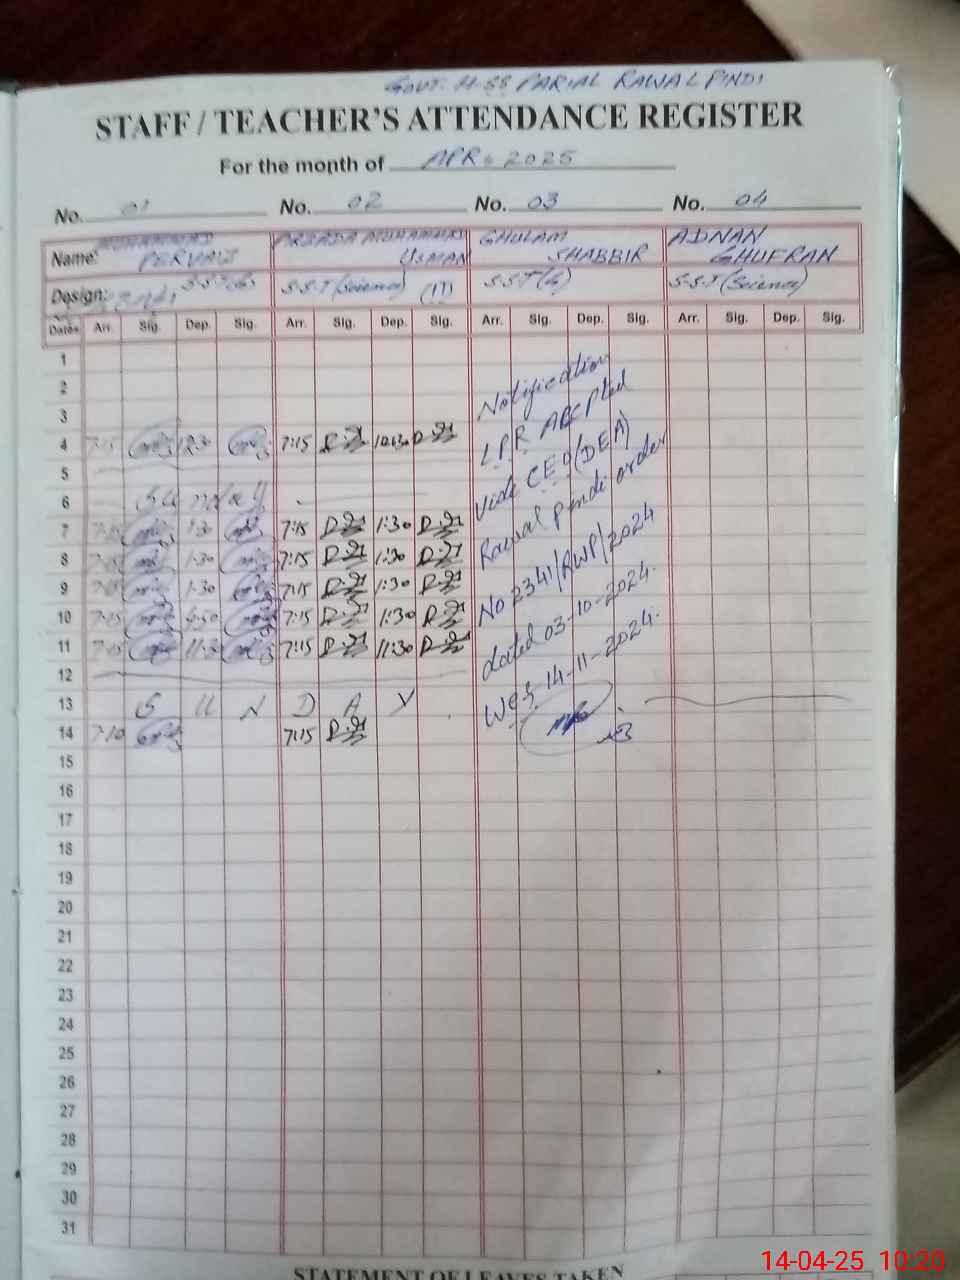 GOVT. H-SS PARIAL RAWALPINDI
STAFF / TEACHER'S ATTENDANCE REGISTER
For the month of APR. 2025
No. 01 No. 02 No. 03 No. 04
Name: MUHAMMAD PERVAIZ MUHAMMAD USMAN GHULAM SHABBIR ADNAN GHUFRAN
Design: S.S.T(G) S.S.T(Science) S.S.T(G) S.S.T(Science)
Dates Arr. Sig. Dep. Sig. Arr. Sig. Dep. Sig. Arr. Sig. Dep. Sig. Arr. Sig. Dep. Sig.
1
2
3
4 7:15 12:30 7:15
5
6 Sunday
7 7:15 1:30 7:15 1:30
8 7:15 1:30 7:15 1:30
9 7:15 1:30 7:15 1:30
10 7:15 7:15 1:30
11 7:15 11:30 7:15 11:30
12
13 S U N D A Y
14 7:10 7:15
15
16
17
18
19
20
21
22
23
24
25
26
27
28
29
30
31
Notification
LPR
Vide CEO(DEA)
Rawalpindi order
No 2341/RWP/2024
dated 03-10-2024.
14-11-2024.
STATEMENT OF LEAVES TAKEN
14-04-25 10:20